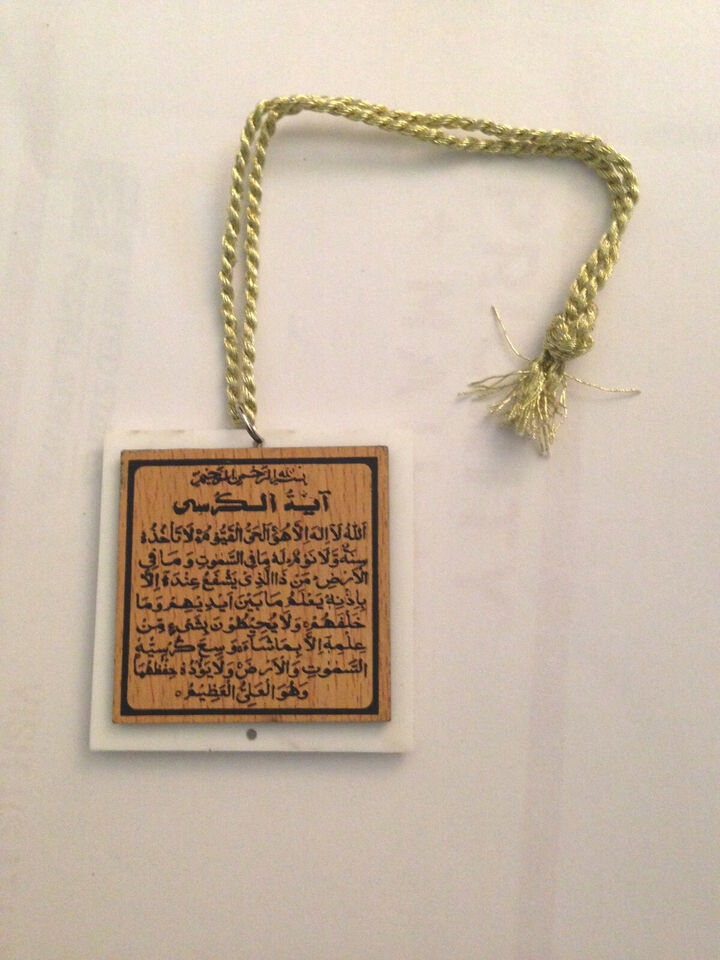 بسم الله الرحمن الرحيم
آية الكرسى
اَللهُ لَآ اِلٰهَ اِلَّا هُوَ اَلْحَىُّ الْقَيُّومُ ۚ لَا تَأْخُذُهٗ
سِنَةٌ وَّلَا نَوْمٌ ؕ لَهٗ مَا فِى السَّمٰوٰتِ وَمَا فِى
الْاَرْضِ ؕ مَنْ ذَا الَّذِىْ يَشْفَعُ عِنْدَهٗٓ اِلَّا
بِاِذْنِهٖ ؕ يَعْلَمُ مَا بَيْنَ اَيْدِيْهِمْ وَمَا
خَلْفَهُمْ ۚ وَلَا يُحِيْطُوْنَ بِشَىْءٍ مِّنْ
عِلْمِهٖٓ اِلَّا بِمَا شَآءَ ۚ وَسِعَ كُرْسِيُّهُ
السَّمٰوٰتِ وَالْاَرْضَ ۚ وَلَا يَؤُدُهٗ حِفْظُهُمَا ۚ
وَهُوَ الْعَلِىُّ الْعَظِيْمُ ○